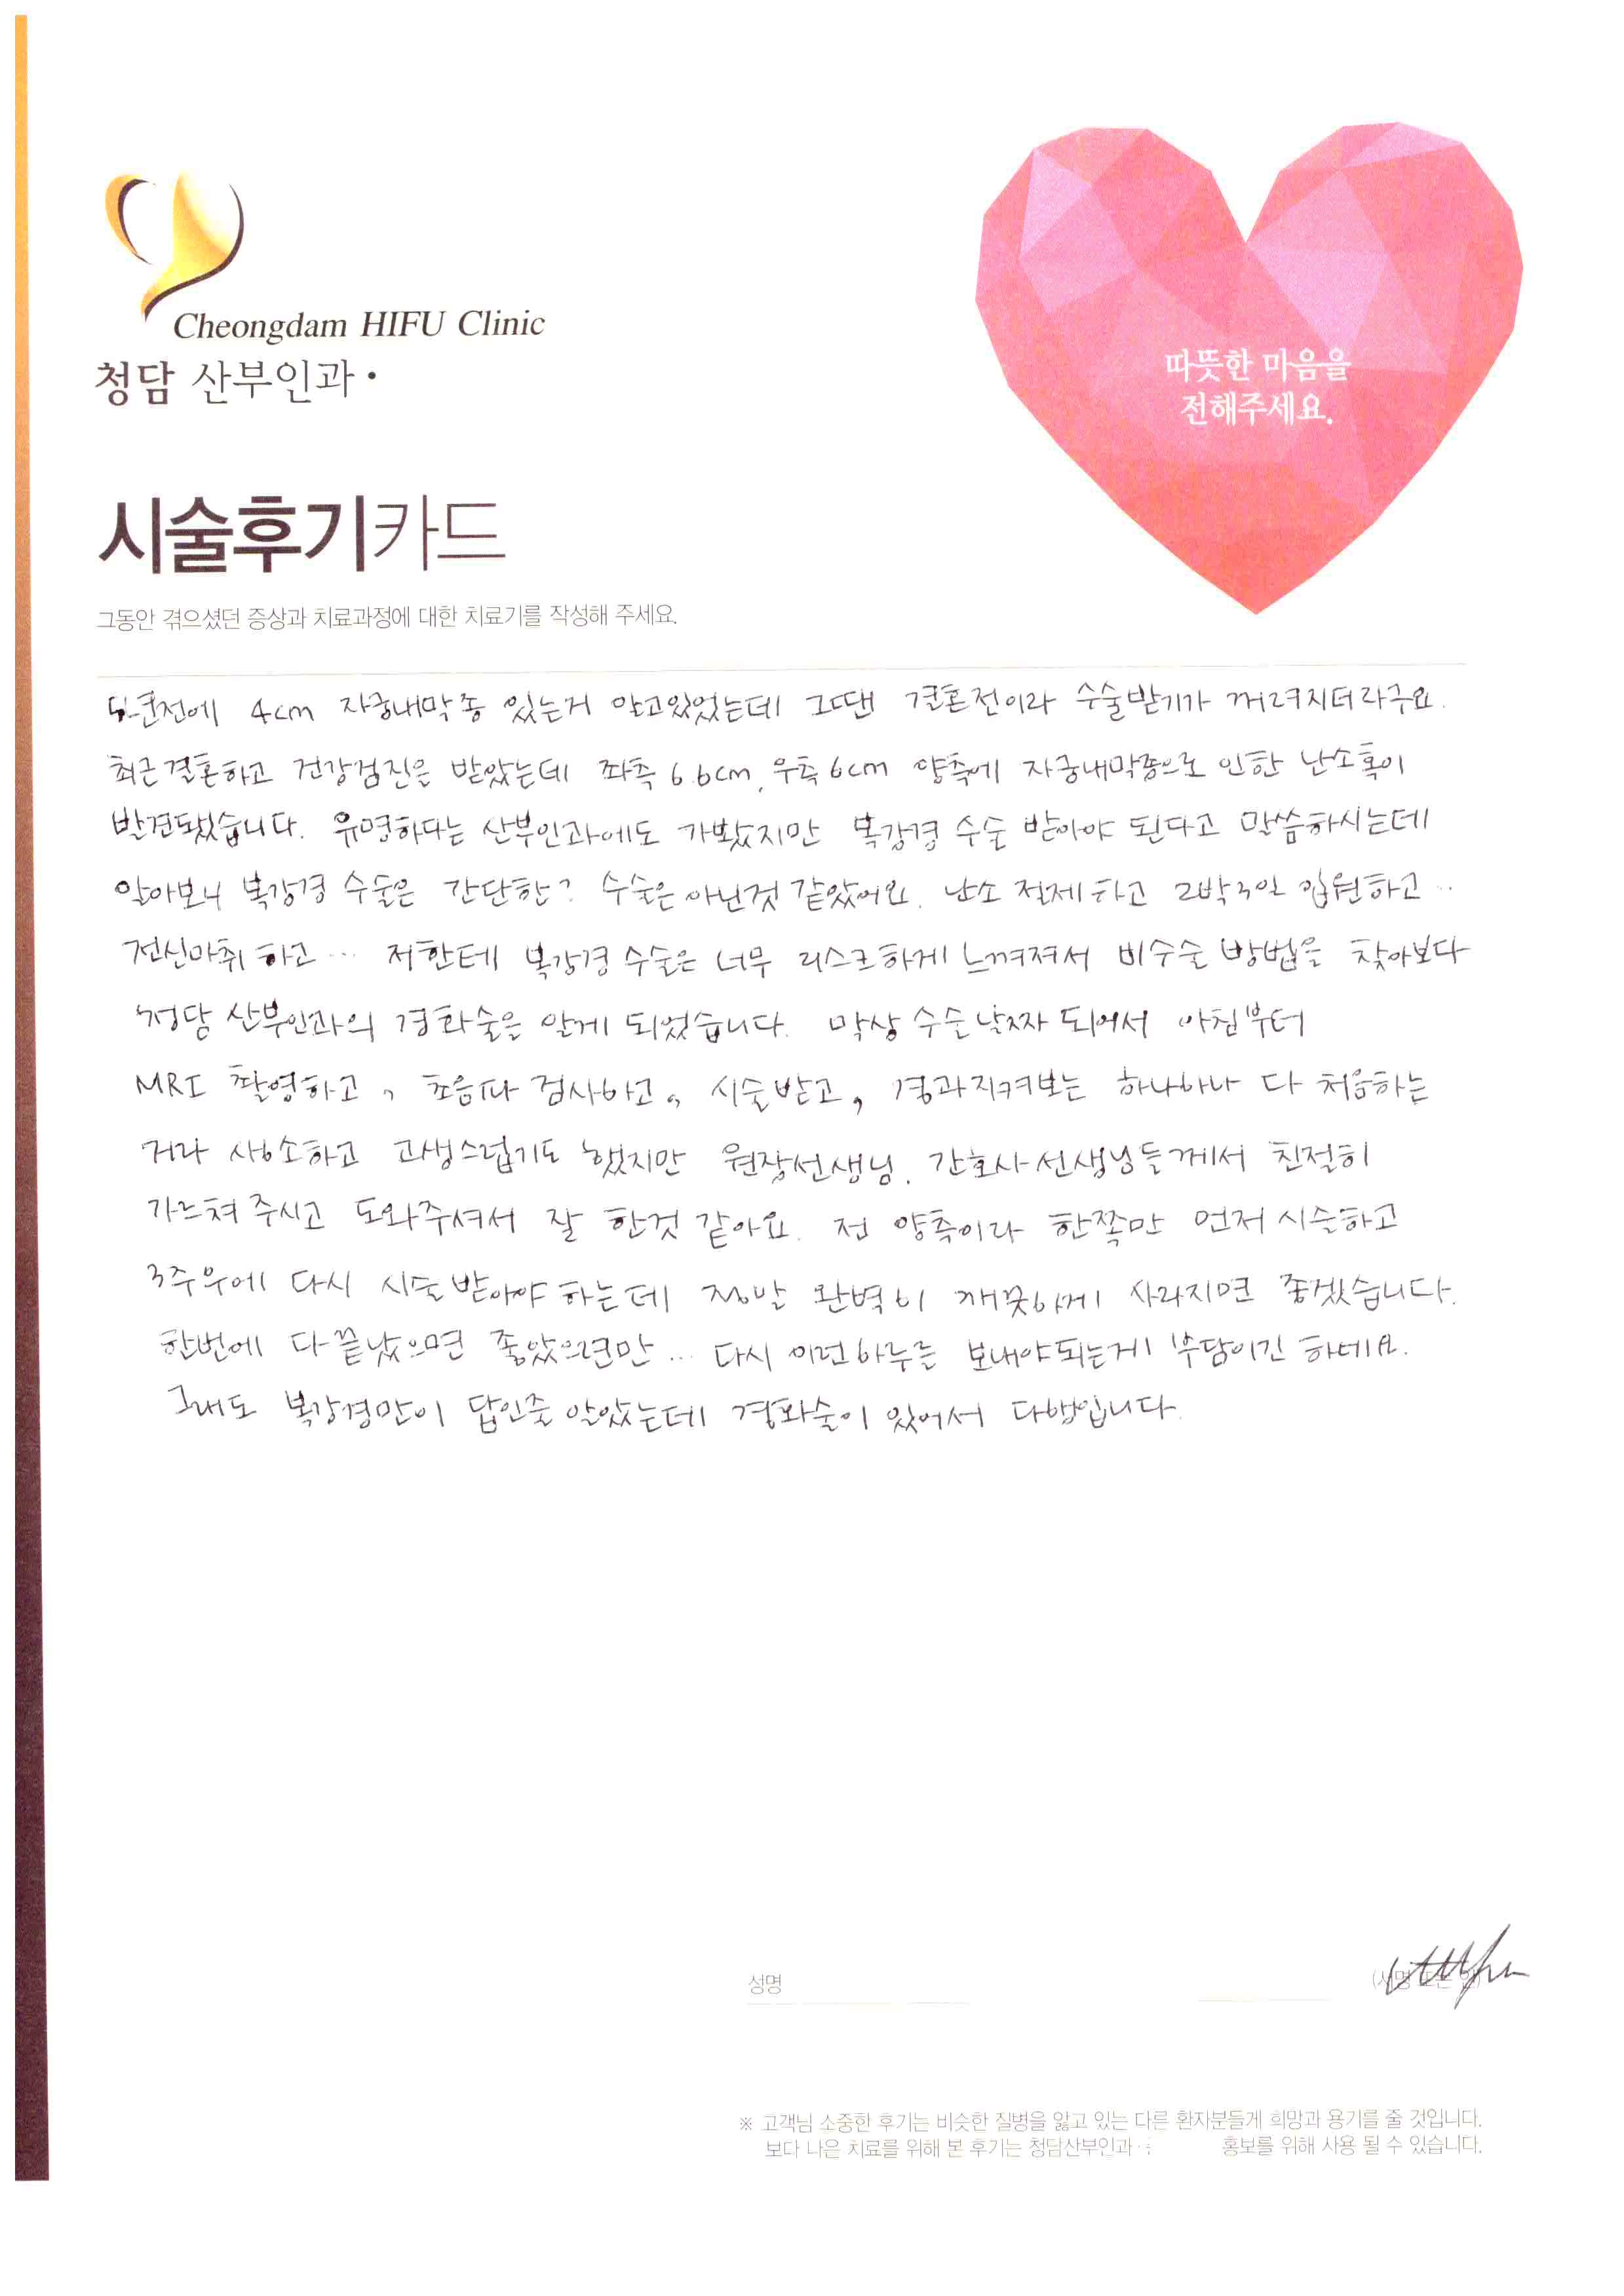 Cheongdam HIFU Clinic
청담 산부인과·
따뜻한 마음을
전해주세요.
시술후기카드
그동안 겪으셨던 증상과 치료과정에 대한 치료기를 작성해 주세요.
4cm 자궁내막종 있는거 알고있었는데 그땐 결혼전이라 수술받기가 꺼려지더라구요.
최근 결혼하고 건강검진은 받았는데 좌측 6.6cm, 우측 6cm 양측에 자궁내막종으로 인한 난소혹이
발견됐습니다. 유명하다는 산부인과에도 가봤지만 복강경 수술 받아야 된다고 말씀하시는데
알아보니 복강경 수술은 간단한? 수술은 아닌것 같았어요. 난소 절제하고 2박3일 입원하고..
전신마취 하고... 저한테 복강경 수술은 너무 리스크하게 느껴져서 비수술 방법을 찾아보다
청담 산부인과의 경화술을 알게 되었습니다. 막상 수술날짜 되어서 아침부터
MRI 촬영하고, 초음파 검사하고, 시술받고, 경과지켜보는 하나하나 다 처음하는
거라 생소하고 고생스럽기도 했지만 원장선생님, 간호사선생님들께서 친절히
가르쳐 주시고 도와주셔서 잘 한것 같아요. 전 양측이라 한쪽만 먼저 시술하고
3주후에 다시 시술 받아야 하는데 정말 완벽히 깨끗하게 사라지면 좋겠습니다.
한번에 다 끝났으면 좋았으련만... 다시 이런하루를 보내야되는게 부담이긴 하네요.
그래도 복강경만이 답인줄 알았는데 경화술이 있어서 다행입니다.
성명
※ 고객님 소중한 후기는 비슷한 질병을 앓고 있는 다른 환자분들게 희망과 용기를 줄 것입니다.
보다 나은 치료를 위해 본 후기는 청담산부인과· 홍보를 위해 사용 될 수 있습니다.